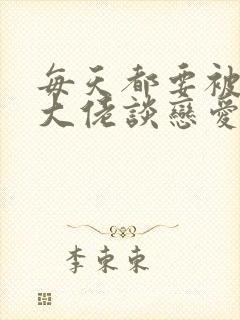 每天都要被
大佬談戀愛
李東東